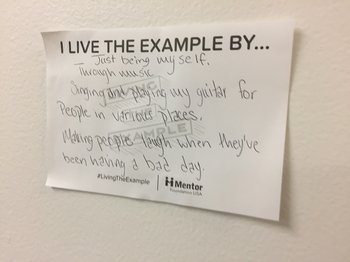 I LIVE THE EXAMPLE BY...
Just being myself.
Through music
Singing and playing my guitar for
People in various places.
Making peoples laugh when they've
been having a bad day.
LIVING
THE
EXAMPLE
#LivingTheExample
Mentor
Foundation USA